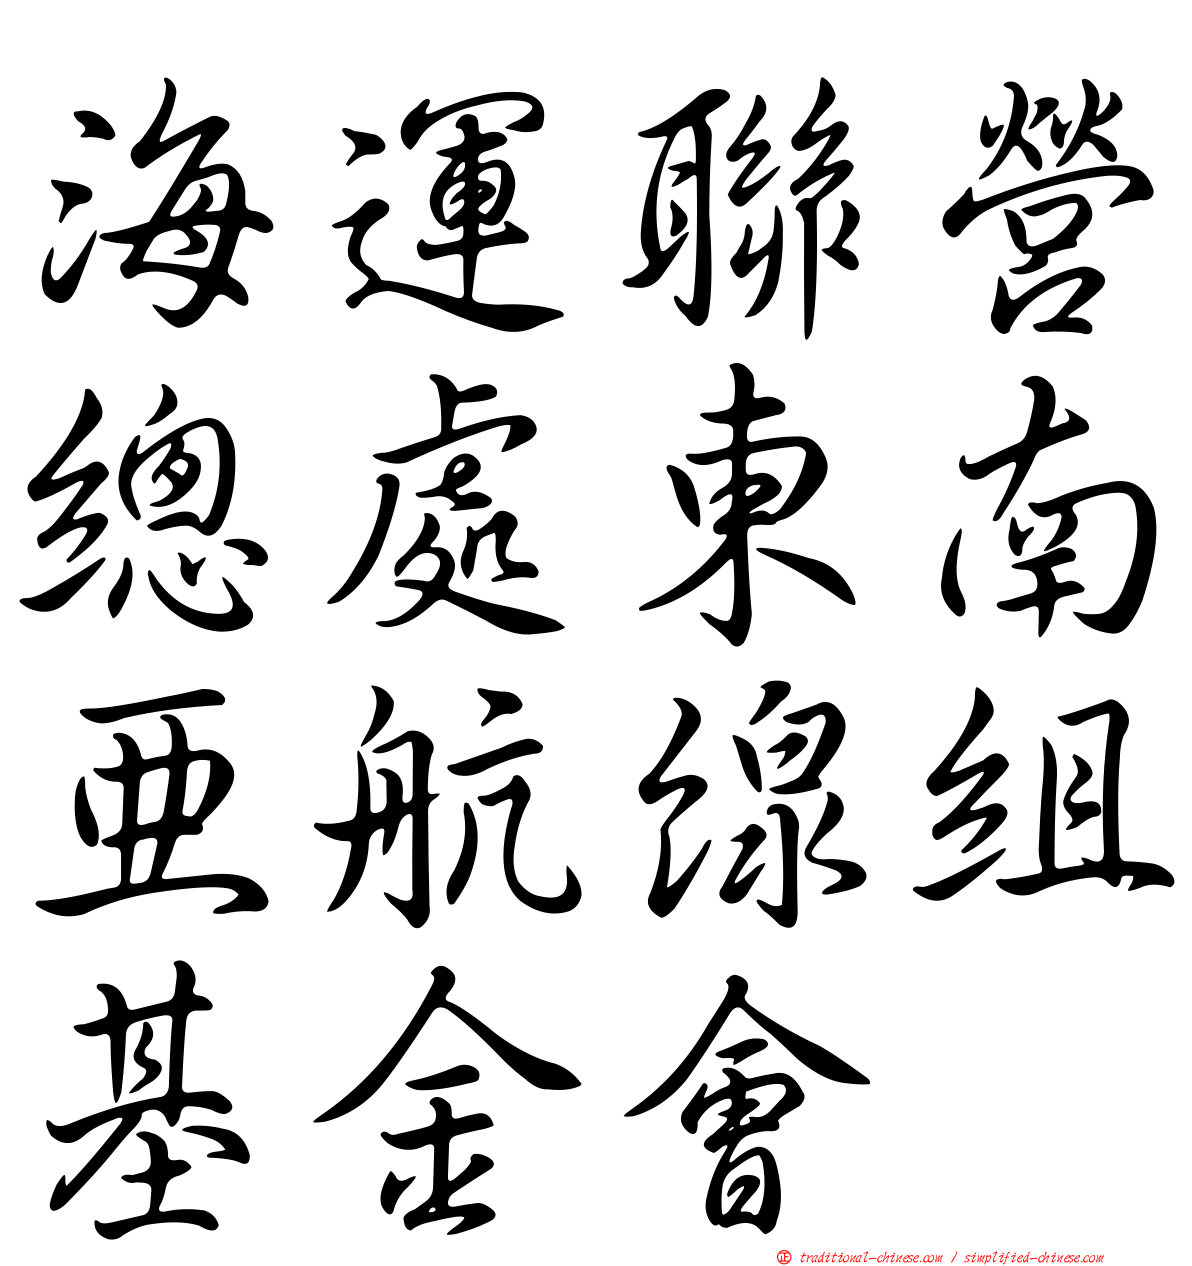 海運聯營
總處東南
亞航線組
基金會
正 traditional-chinese.com / simplified-chinese.com